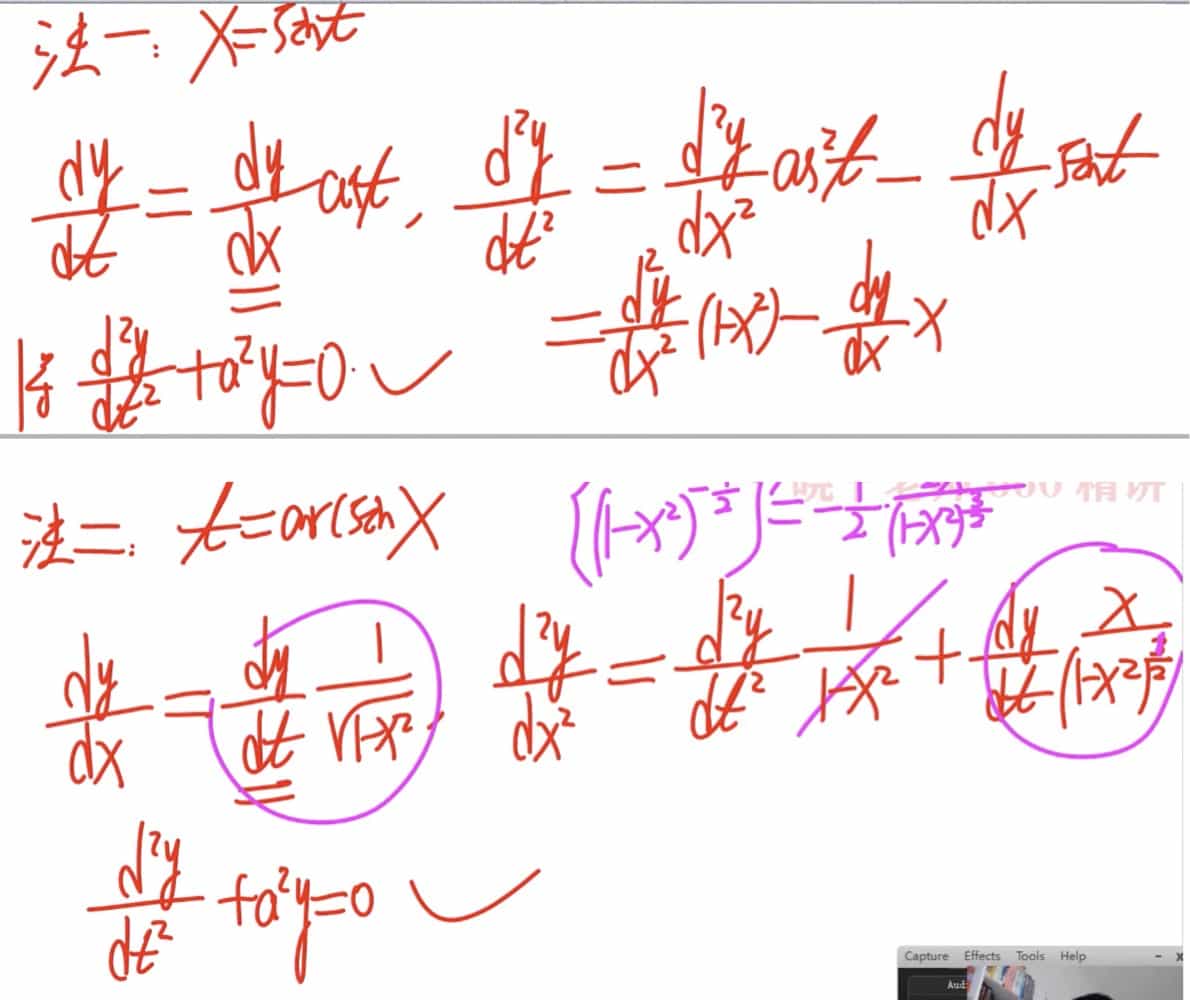 法一: x=sint
dy/dt = dy/dx cost, d²y/dt² = d²y/dx² cos²t - dy/dx sint
= d²y/dx² (1-x²) - dy/dx x
得 d²y/dt² + a²y=0.
法二: t=arcsinx
[(1-x²)^(-1/2)]' = -1/2 · (1-x²)^(3/2)
dy/dx = dy/dt 1/√(1-x²), d²y/dx² = d²y/dt² 1/(1-x²) + dy/dt x/(1-x²)^(3/2)
d²y/dt² + a²y=0
Capture Effects Tools Help